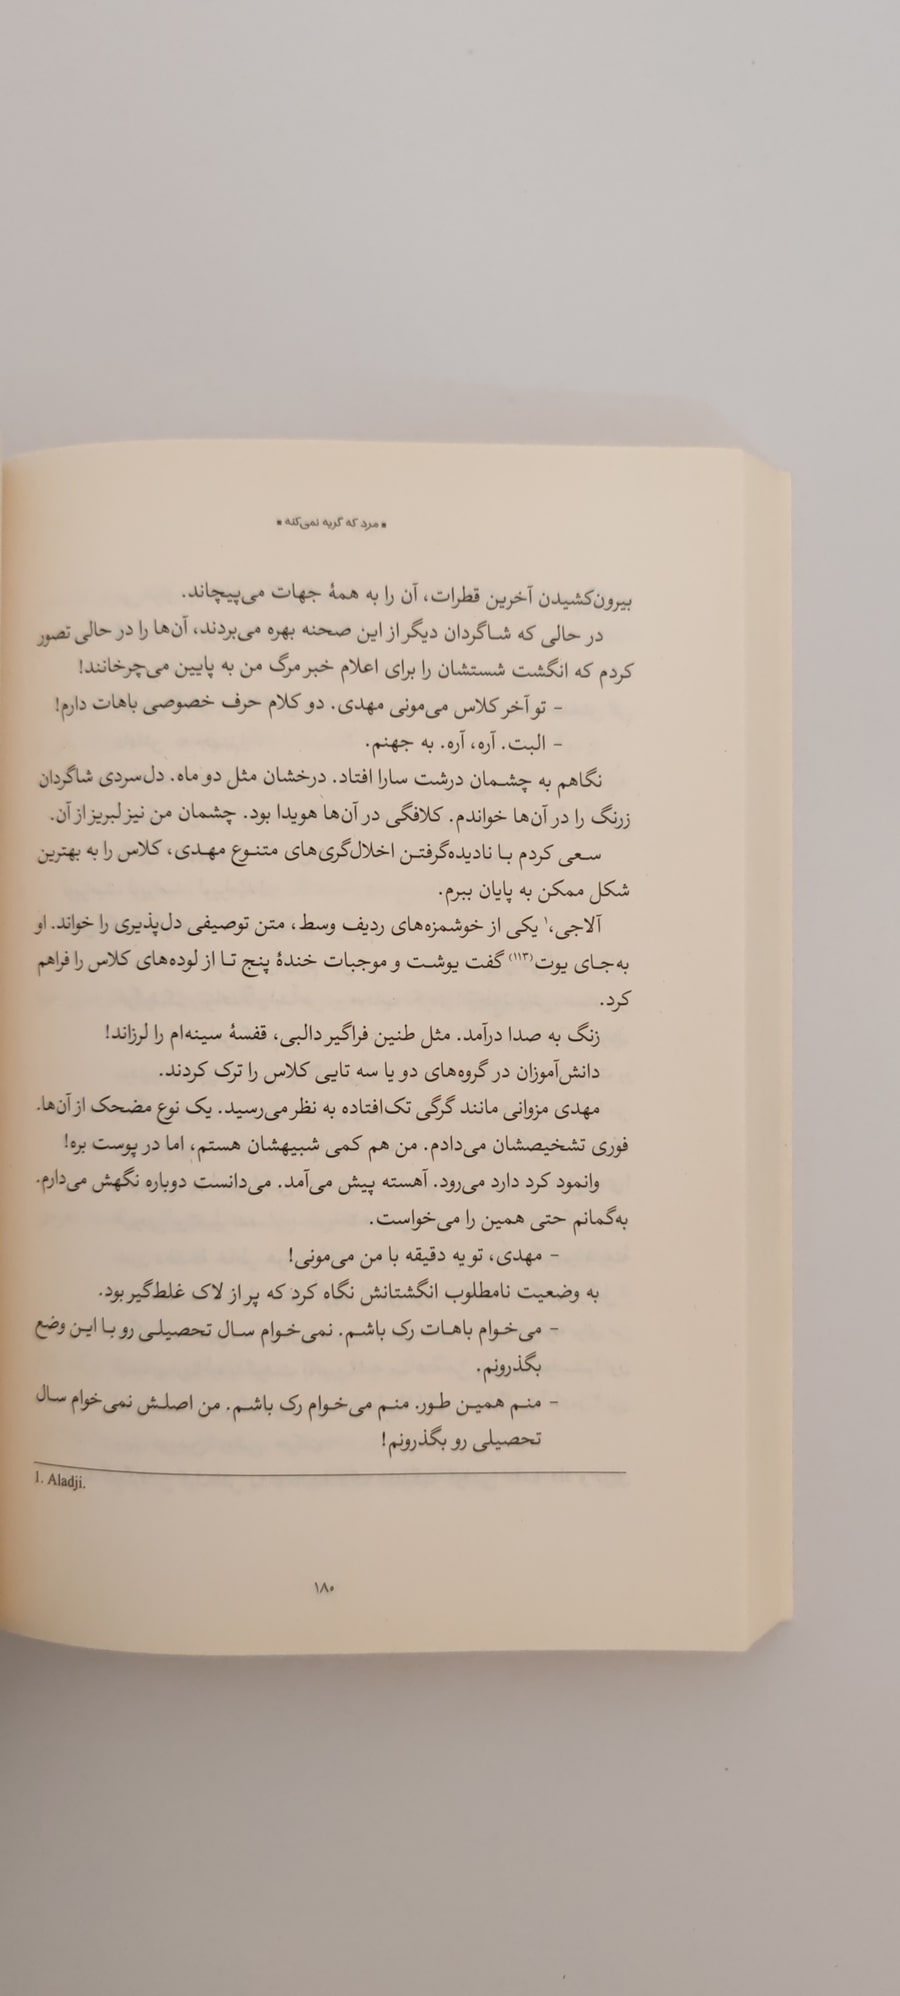 * مرد که گریه نمی‌کنه *
بیرون‌کشیدن آخرین قطرات، آن را به همهٔ جهات می‌پیچاند.
در حالی که شاگردان دیگر از این صحنه بهره می‌بردند، آن‌ها را در حالی تصور
کردم که انگشت شستشان را برای اعلام خبر مرگ من به پایین می‌چرخانند!
- تو آخر کلاس می‌مونی مهدی. دو کلام حرف خصوصی باهات دارم!
- البت. آره، آره. به جهنم.
نگاهم به چشمان درشت سارا افتاد. درخشان مثل دو ماه. دل‌سردی شاگردان
زرنگ را در آن‌ها خواندم. کلافگی در آن‌ها هویدا بود. چشمان من نیز لبریز از آن.
سعی کردم با نادیده‌گرفتن اخلال‌گری‌های متنوع مهدی، کلاس را به بهترین
شکل ممکن به پایان ببرم.
آلاجی،۱ یکی از خوشمزه‌های ردیف وسط، متن توصیفی دل‌پذیری را خواند. او
به‌جای یوت(۱۱۳) گفت یوشت و موجبات خندهٔ پنج تا از لوده‌های کلاس را فراهم
کرد.
زنگ به صدا درآمد. مثل طنین فراگیر دالبی، قفسهٔ سینه‌ام را لرزاند!
دانش‌آموزان در گروه‌های دو یا سه تایی کلاس را ترک کردند.
مهدی مزوانی مانند گرگی تک‌افتاده به نظر می‌رسید. یک نوع مضحک از آن‌ها.
فوری تشخیصشان می‌دادم. من هم کمی شبیهشان هستم، اما در پوست بره!
وانمود کرد دارد می‌رود. آهسته پیش می‌آمد. می‌دانست دوباره نگهش می‌دارم.
به‌گمانم حتی همین را می‌خواست.
- مهدی، تو یه دقیقه با من می‌مونی!
به وضعیت نامطلوب انگشتانش نگاه کرد که پر از لاک غلط‌گیر بود.
- می‌خوام باهات رک باشم. نمی‌خوام سال تحصیلی رو با این وضع
بگذرونم.
- منم همین طور. منم می‌خوام رک باشم. من اصلش نمی‌خوام سال
تحصیلی رو بگذرونم!
1. Aladji.
۱۸۰